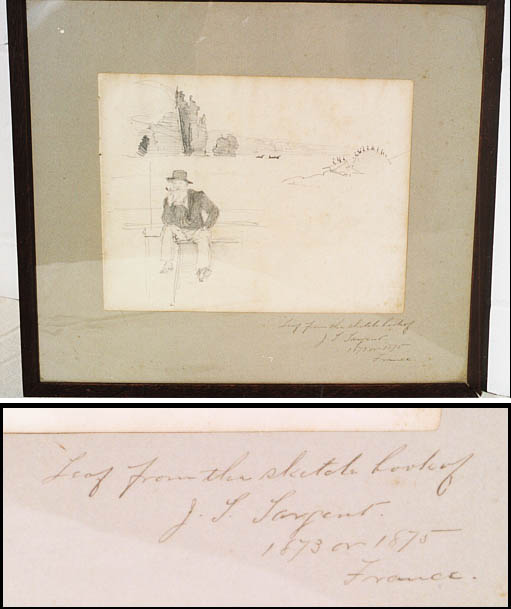 Leaf from the sketch book of
J. S. Sargent
1873 or 1875
France.
Leaf from the sketch book of
J. S. Sargent.
1873 or 1875
France.